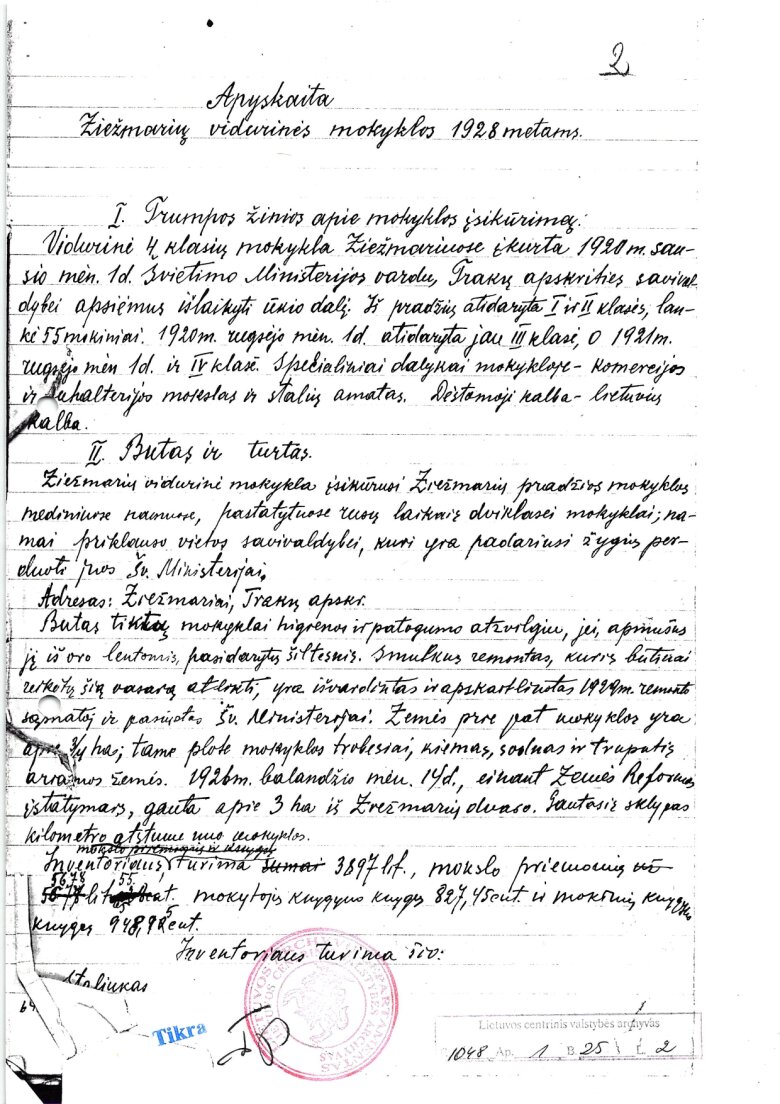 2
Apyskaita
Žiežmarių vidurinės mokyklos 1928 metams.
I. Trumpos žinios apie mokyklos įsikūrimą:
Vidurinė 4 klasių mokykla Žiežmariuose įkurta 1920 m. sau-
sio mėn. 1d. Švietimo Ministerijos vardu, Trakų apskrities savival-
dybei apsiėmus išlaikyti ūkio dalį. Iš pradžių atidaryta I ir II klasės, lan-
kė 55 mokiniai. 1920m. rugsėjo mėn. 1d. atidaryta jau III klasė, o 1921m.
rugsėjo mėn 1d. ir IV klasė. Specialiniai dalykai mokykloje - komercijos
ir buhalterijos mokslas ir stalių amatas. Dėstomoji kalba - lietuvių
kalba.
II. Butas ir turtas.
Žiežmarių vidurinė mokykla įsikūrusi Žiežmarių pradžios mokyklos
mediniuose namuose, pastatytuose rusų laikais dviklasei mokyklai; na-
mai priklauso vietos savivaldybei, kuri yra padariusi žygių per-
duoti juos Šv. Ministerijai.
Adresas: Žiežmariai, Trakų apskr.
Butas tiktų mokyklai higienos ir patogumo atžvilgiu, jei, apmušus
jį iš oro lentomis, pasidarytų šiltesnis. Smulkus remontas, kuris būtinai
reikėtų šią vasarą atlikti, yra išvardintas ir apskaitliuotas 1929m. remonto
sąmatoj ir pasiųstas Šv. Ministerijai. Žemės prie pat mokyklos yra
apie 3/4 ha; tame plote mokyklos trobesiai, kiemas, sodnas ir truputis
ariamos žemės. 1926m. balandžio mėn. 14d., einant Žemės Reformos
įstatymais, gauta apie 3 ha iš Žiežmarių dvaro. Gautasis sklypas
kilometro atstume nuo mokyklos.
mokslo priemonių ir knygų
Inventoriaus turima sumai 3897 lit., mokslo priemonių už
5678 55
lit. cent. mokytojų knygyno knygų 827,45cent. ir mokinių knygyno
knygų 948,95cent.
Inventoriaus turima šio:
Staliukas
64
Tikra
Lietuvos centrinis valstybės archyvas
1048 Ap. 1 B. 25 L. 2